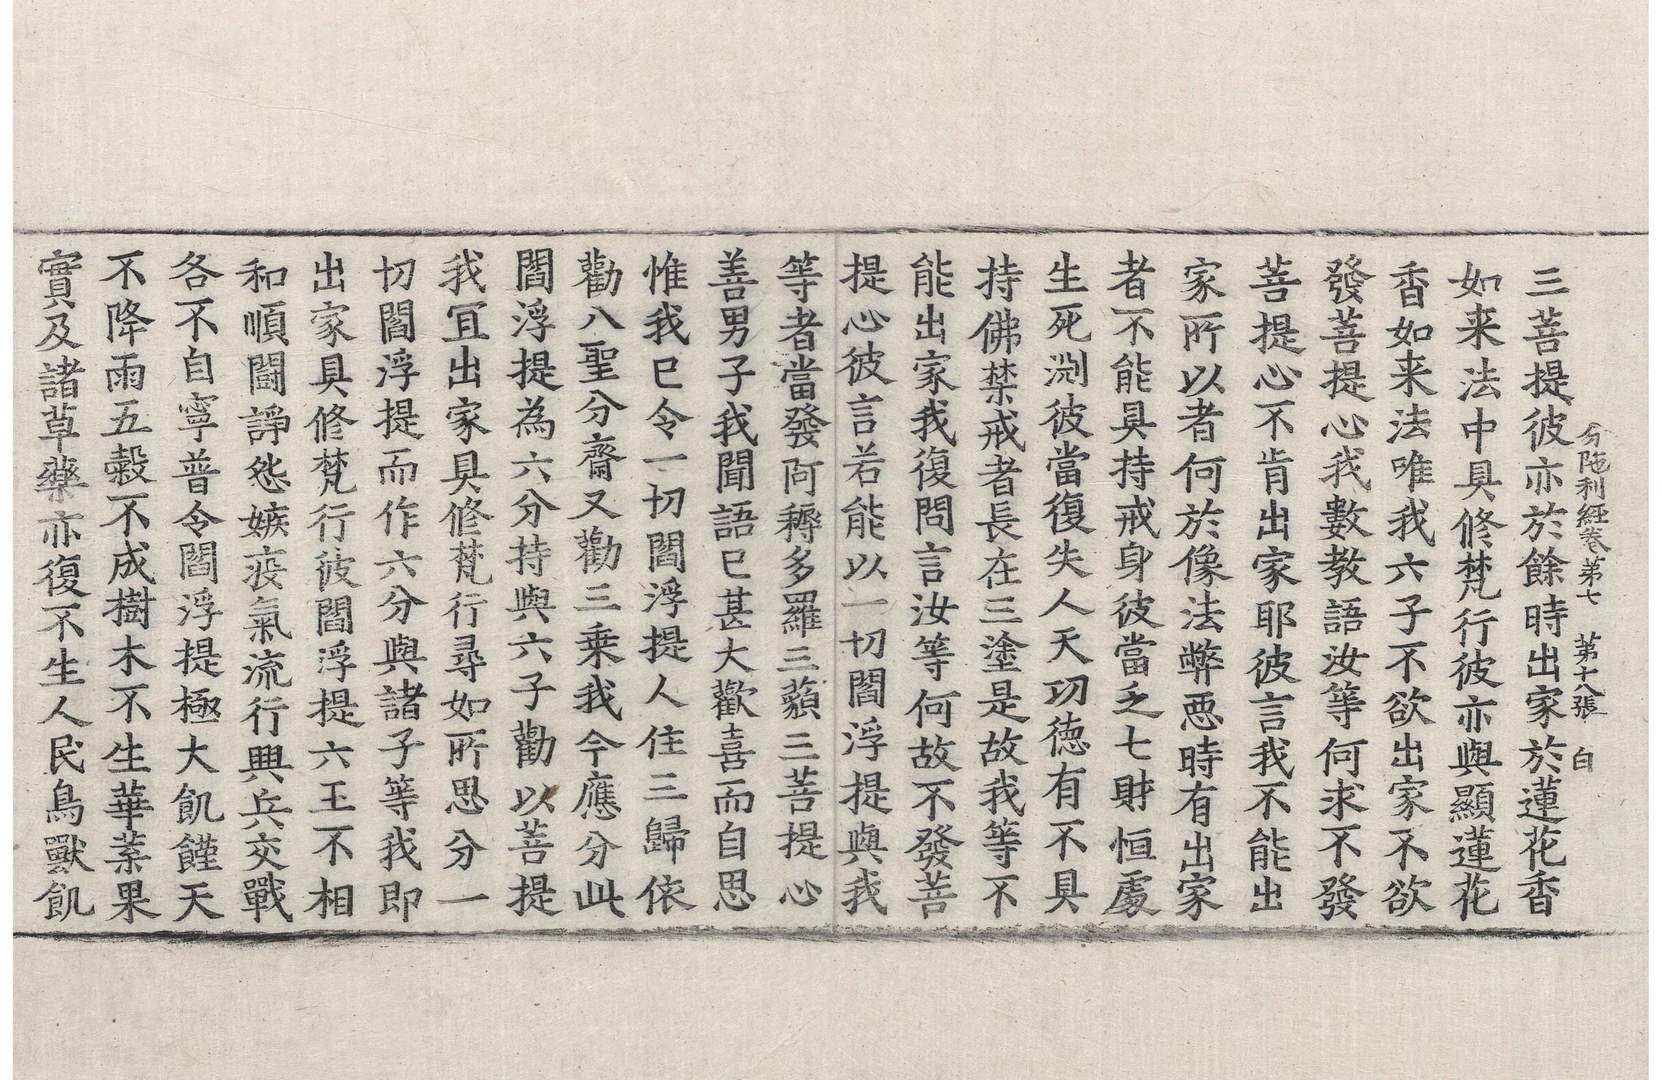 分陁利經卷第七　第十八張　白
三菩提彼亦於餘時出家於蓮花香
如来法中具修梵行彼亦與顯蓮花
香如来法唯我六子不欲出家不欲
發菩提心我數教語汝等何求不發
菩提心不肯出家耶彼言我不能出
家所以者何於像法弊惡時有出家
者不能具持戒身彼當乏七財恒處
生死渕彼當復失人天功德有不具
持佛禁戒者長在三塗是故我等不
能出家我復問言汝等何故不發菩
提心彼言若能以一切閻浮提與我
等者當發阿耨多羅三藐三菩提心
善男子我聞語已甚大歡喜而自思
惟我已令一切閻浮提人住三歸依
勸八聖分齋又勸三乗我今應分此
閻浮提為六分持與六子勸以菩提
我冝出家具修梵行尋如所思分一
切閻浮提而作六分與諸子等我即
出家具修梵行彼閻浮提六王不相
和順鬪諍怨嫉疫氣流行興兵交戰
各不自寧普令閻浮提極大飢饉天
不降雨五穀不成樹木不生華菓果
實及諸草藥亦復不生人民鳥獸飢